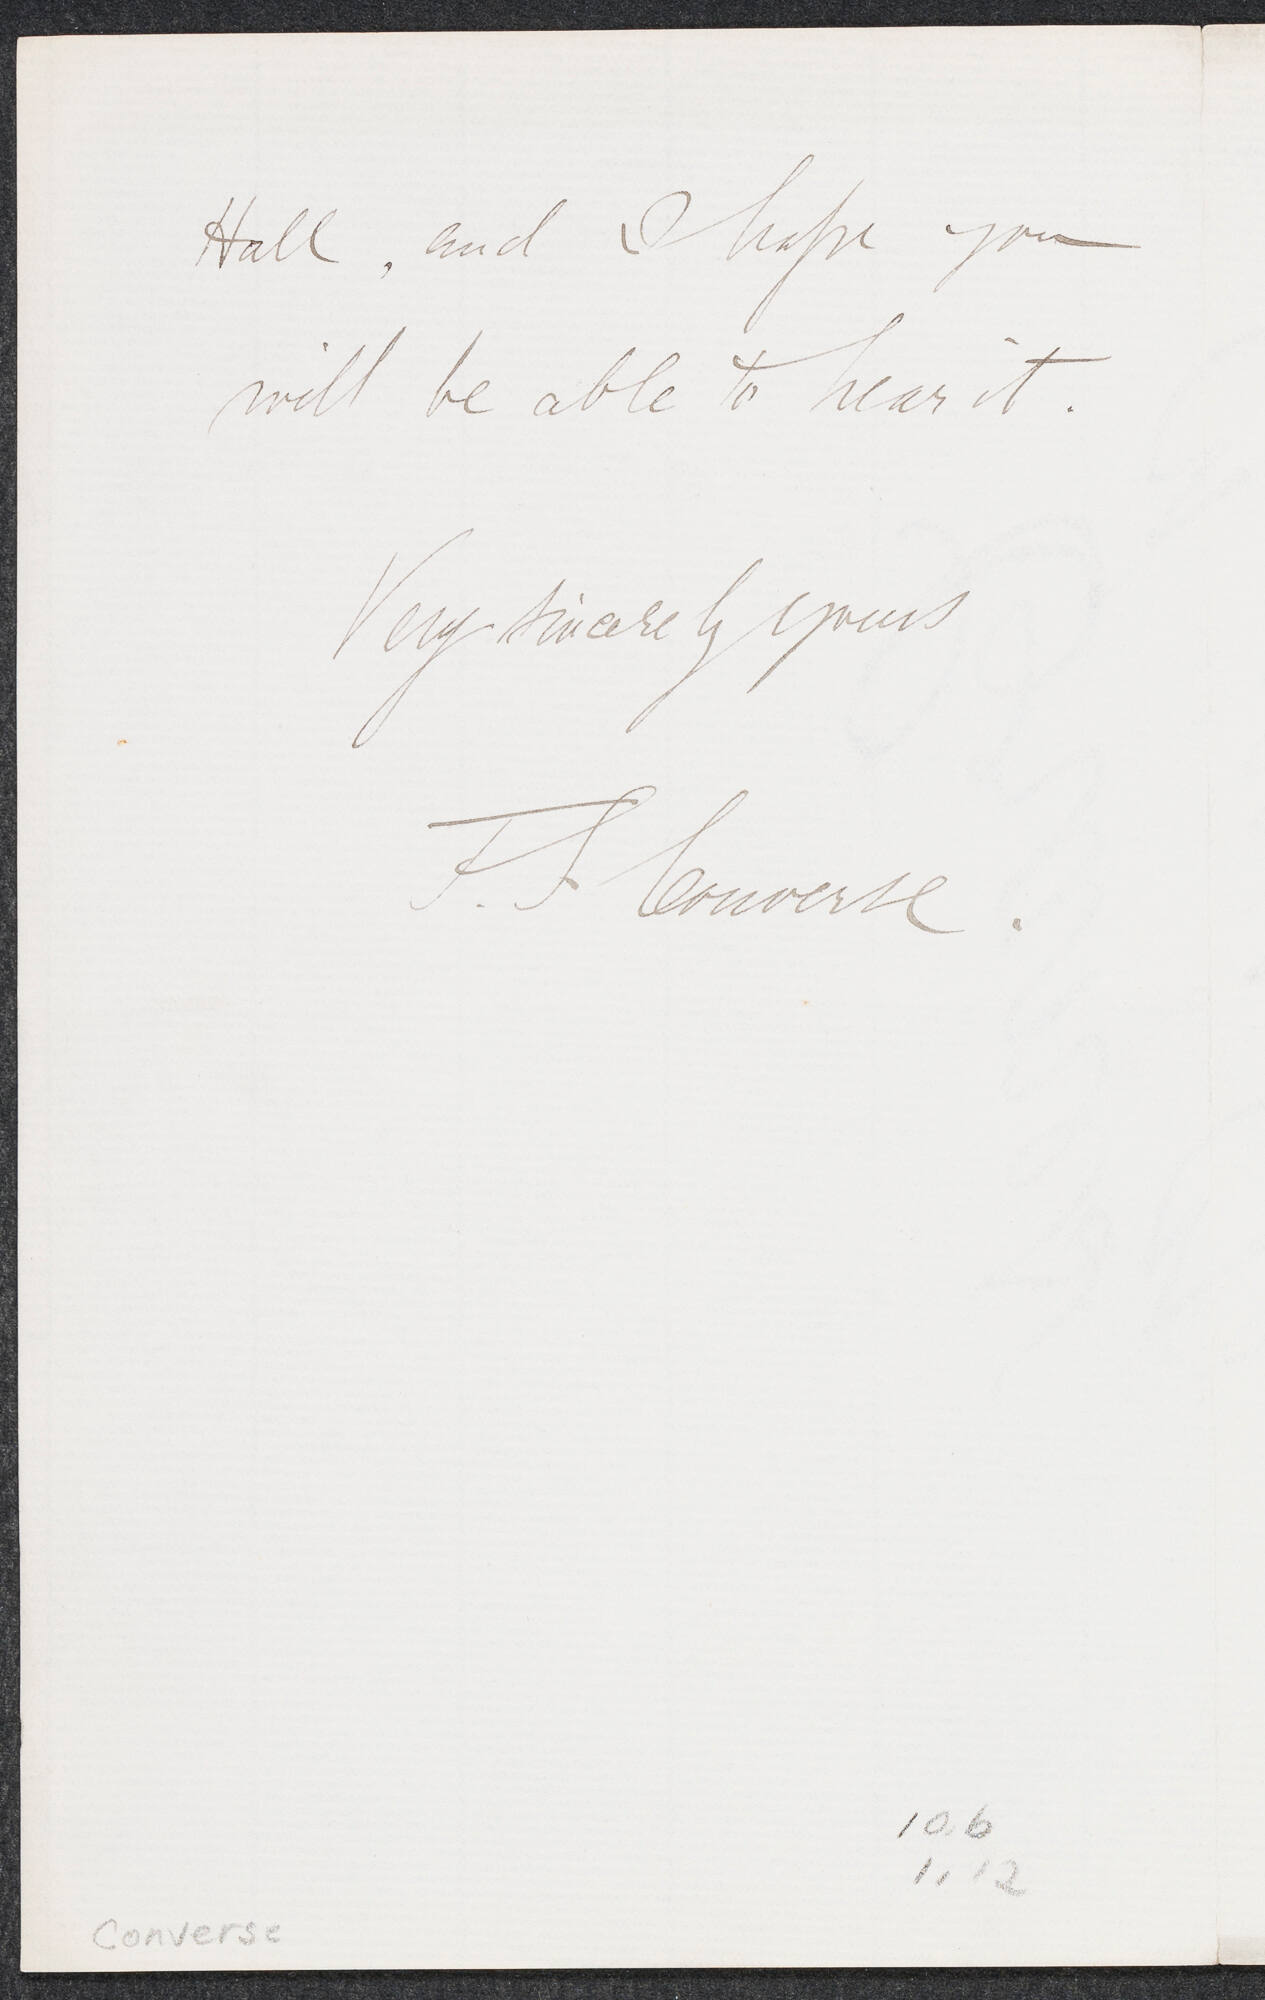 Hall, and I hope you
will be able to hear it.
Very sincerely yours
F. S Converse.
10.6
1.12
Converse